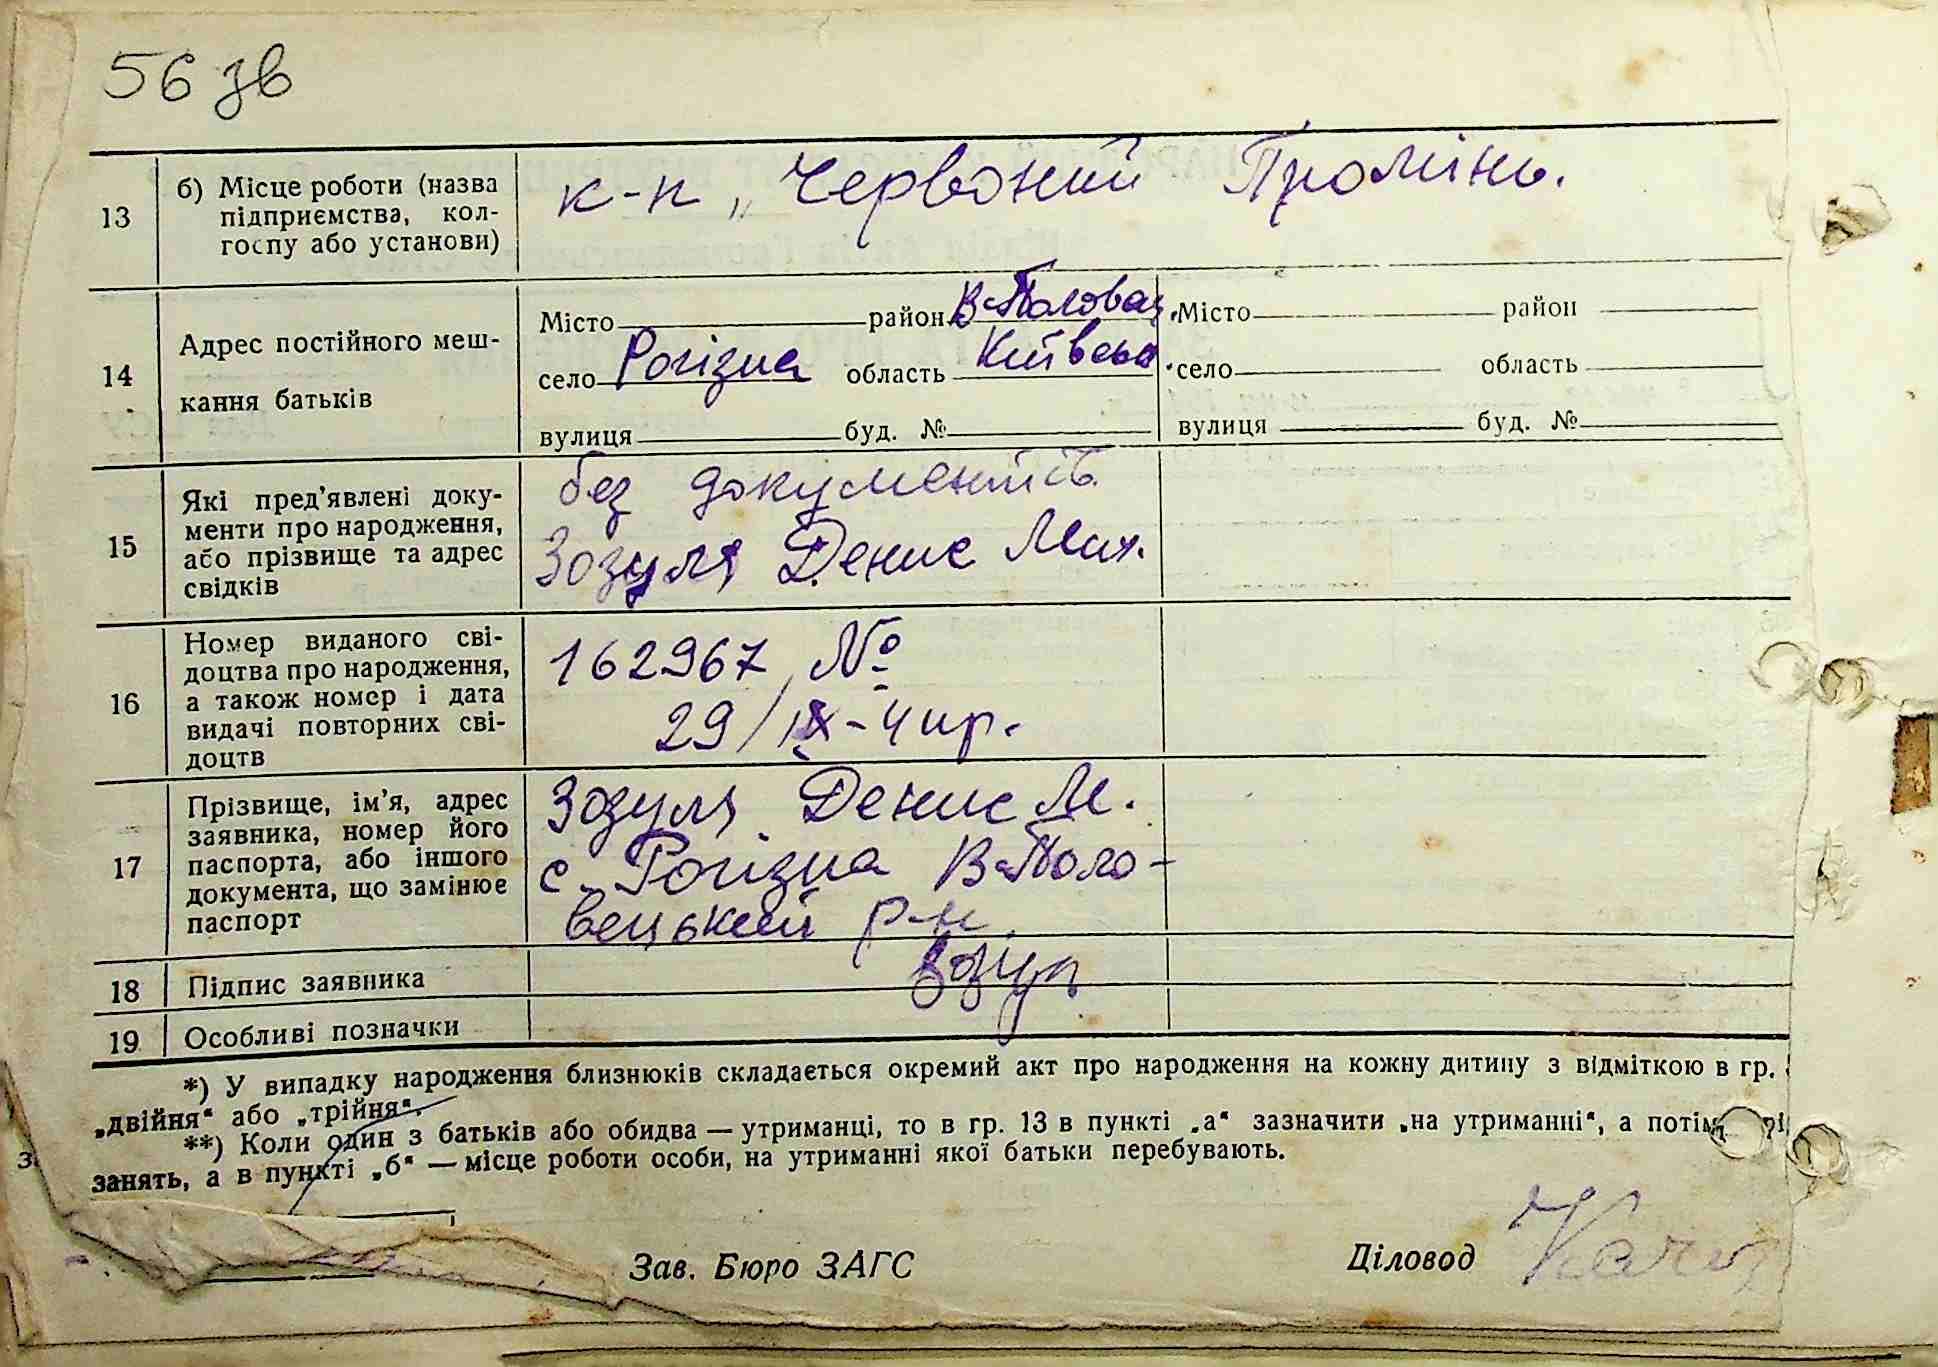 56 зв
13
б) Місце роботи (назва
підприємства, кол-
госпу або установи)
к-п „Червоний Промінь.
14
Адрес постійного меш-
кання батьків
Місто район В-Половец.
село Рогізна область Київська
вулиця буд. №
Місто район
село область
вулиця буд. №
15
Які пред’явлені доку-
менти про народження,
або прізвище та адрес
свідків
без документів.
Зозуля Денис Мих.
16
Номер виданого сві-
доцтва про народження,
а також номер і дата
видачі повторних сві-
доцтв
162967 №
29/IX-41р.
17
Прізвище, ім’я, адрес
заявника, номер його
паспорта, або іншого
документа, що замінює
паспорт
Зозуля Денис М.
с. Рогізна В-Поло-
вецький р-н.
18
Підпис заявника
Зозул
19
Особливі позначки
*) У випадку народження близнюків складається окремий акт про народження на кожну дитину з відміткою в гр.
„двійня“ або „трійня“.
**) Коли один з батьків або обидва — утриманці, то в гр. 13 в пункті „а“ зазначити „на утриманні“, а потім
занять, а в пункті „б“ — місце роботи особи, на утриманні якої батьки перебувають.
Зав. Бюро ЗАГС
Діловод